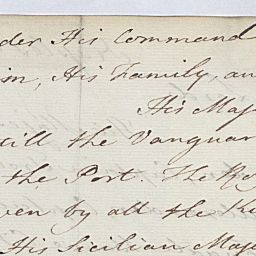 der His Command
im, His Family, an
His Maj
till the Vanguar
the Port. The Ro
ven by all the
His Sicilian Maj